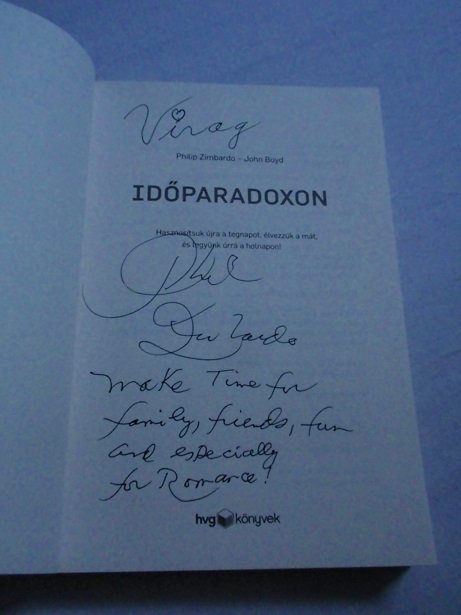 Virag
Philip Zimbardo – John Boyd
IDŐPARADOXON
Hasznosítsuk újra a tegnapot, élvezzük a mát,
és legyünk úrrá a holnapon!
Phil
Zimbardo
make Time for
family, friends, fun
and especially
for Romance!
hvg könyvek